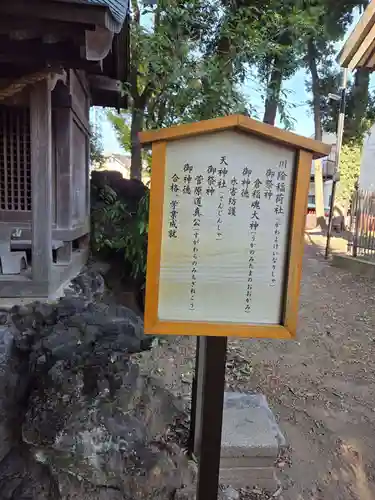 川除稲荷社(かわよけいなりしゃ)
御祭神
倉稲魂大神(うかのみたまのおおがみ)
御神徳
水害防護
天神社(てんじんしゃ)
御祭神
菅原道真公(すがわらのみちざねこう)
御神徳
合格 学業成就